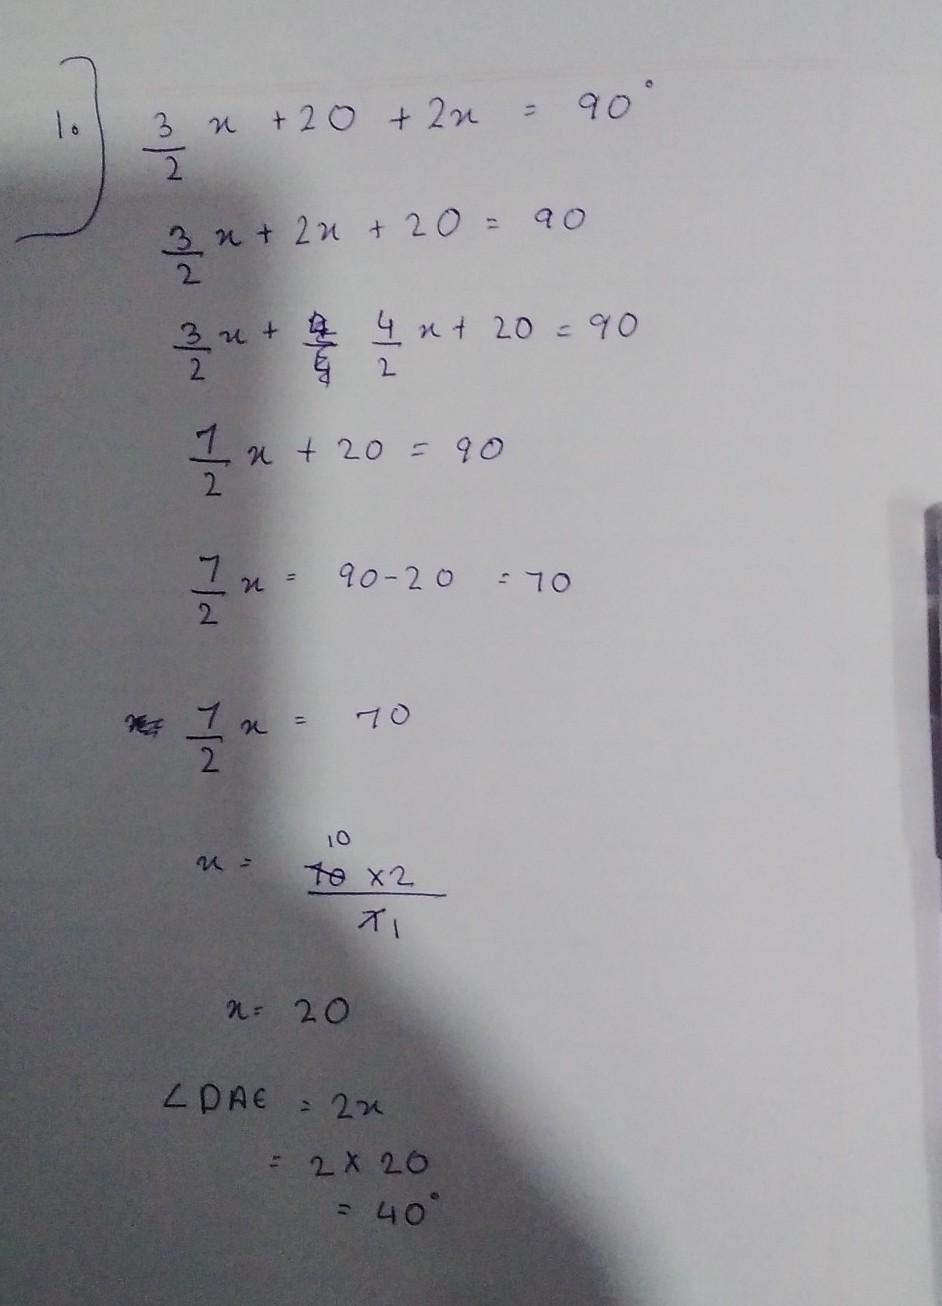 1. 3/2 x + 20 + 2x = 90°
3/2 x + 2x + 20 = 90
3/2 x + 4/2 x + 20 = 90
7/2 x + 20 = 90
7/2 x = 90 - 20 = 70
7/2 x = 70
10
x = 70 × 2 / 7 1
x = 20
∠DAE = 2x
= 2 × 20
= 40°